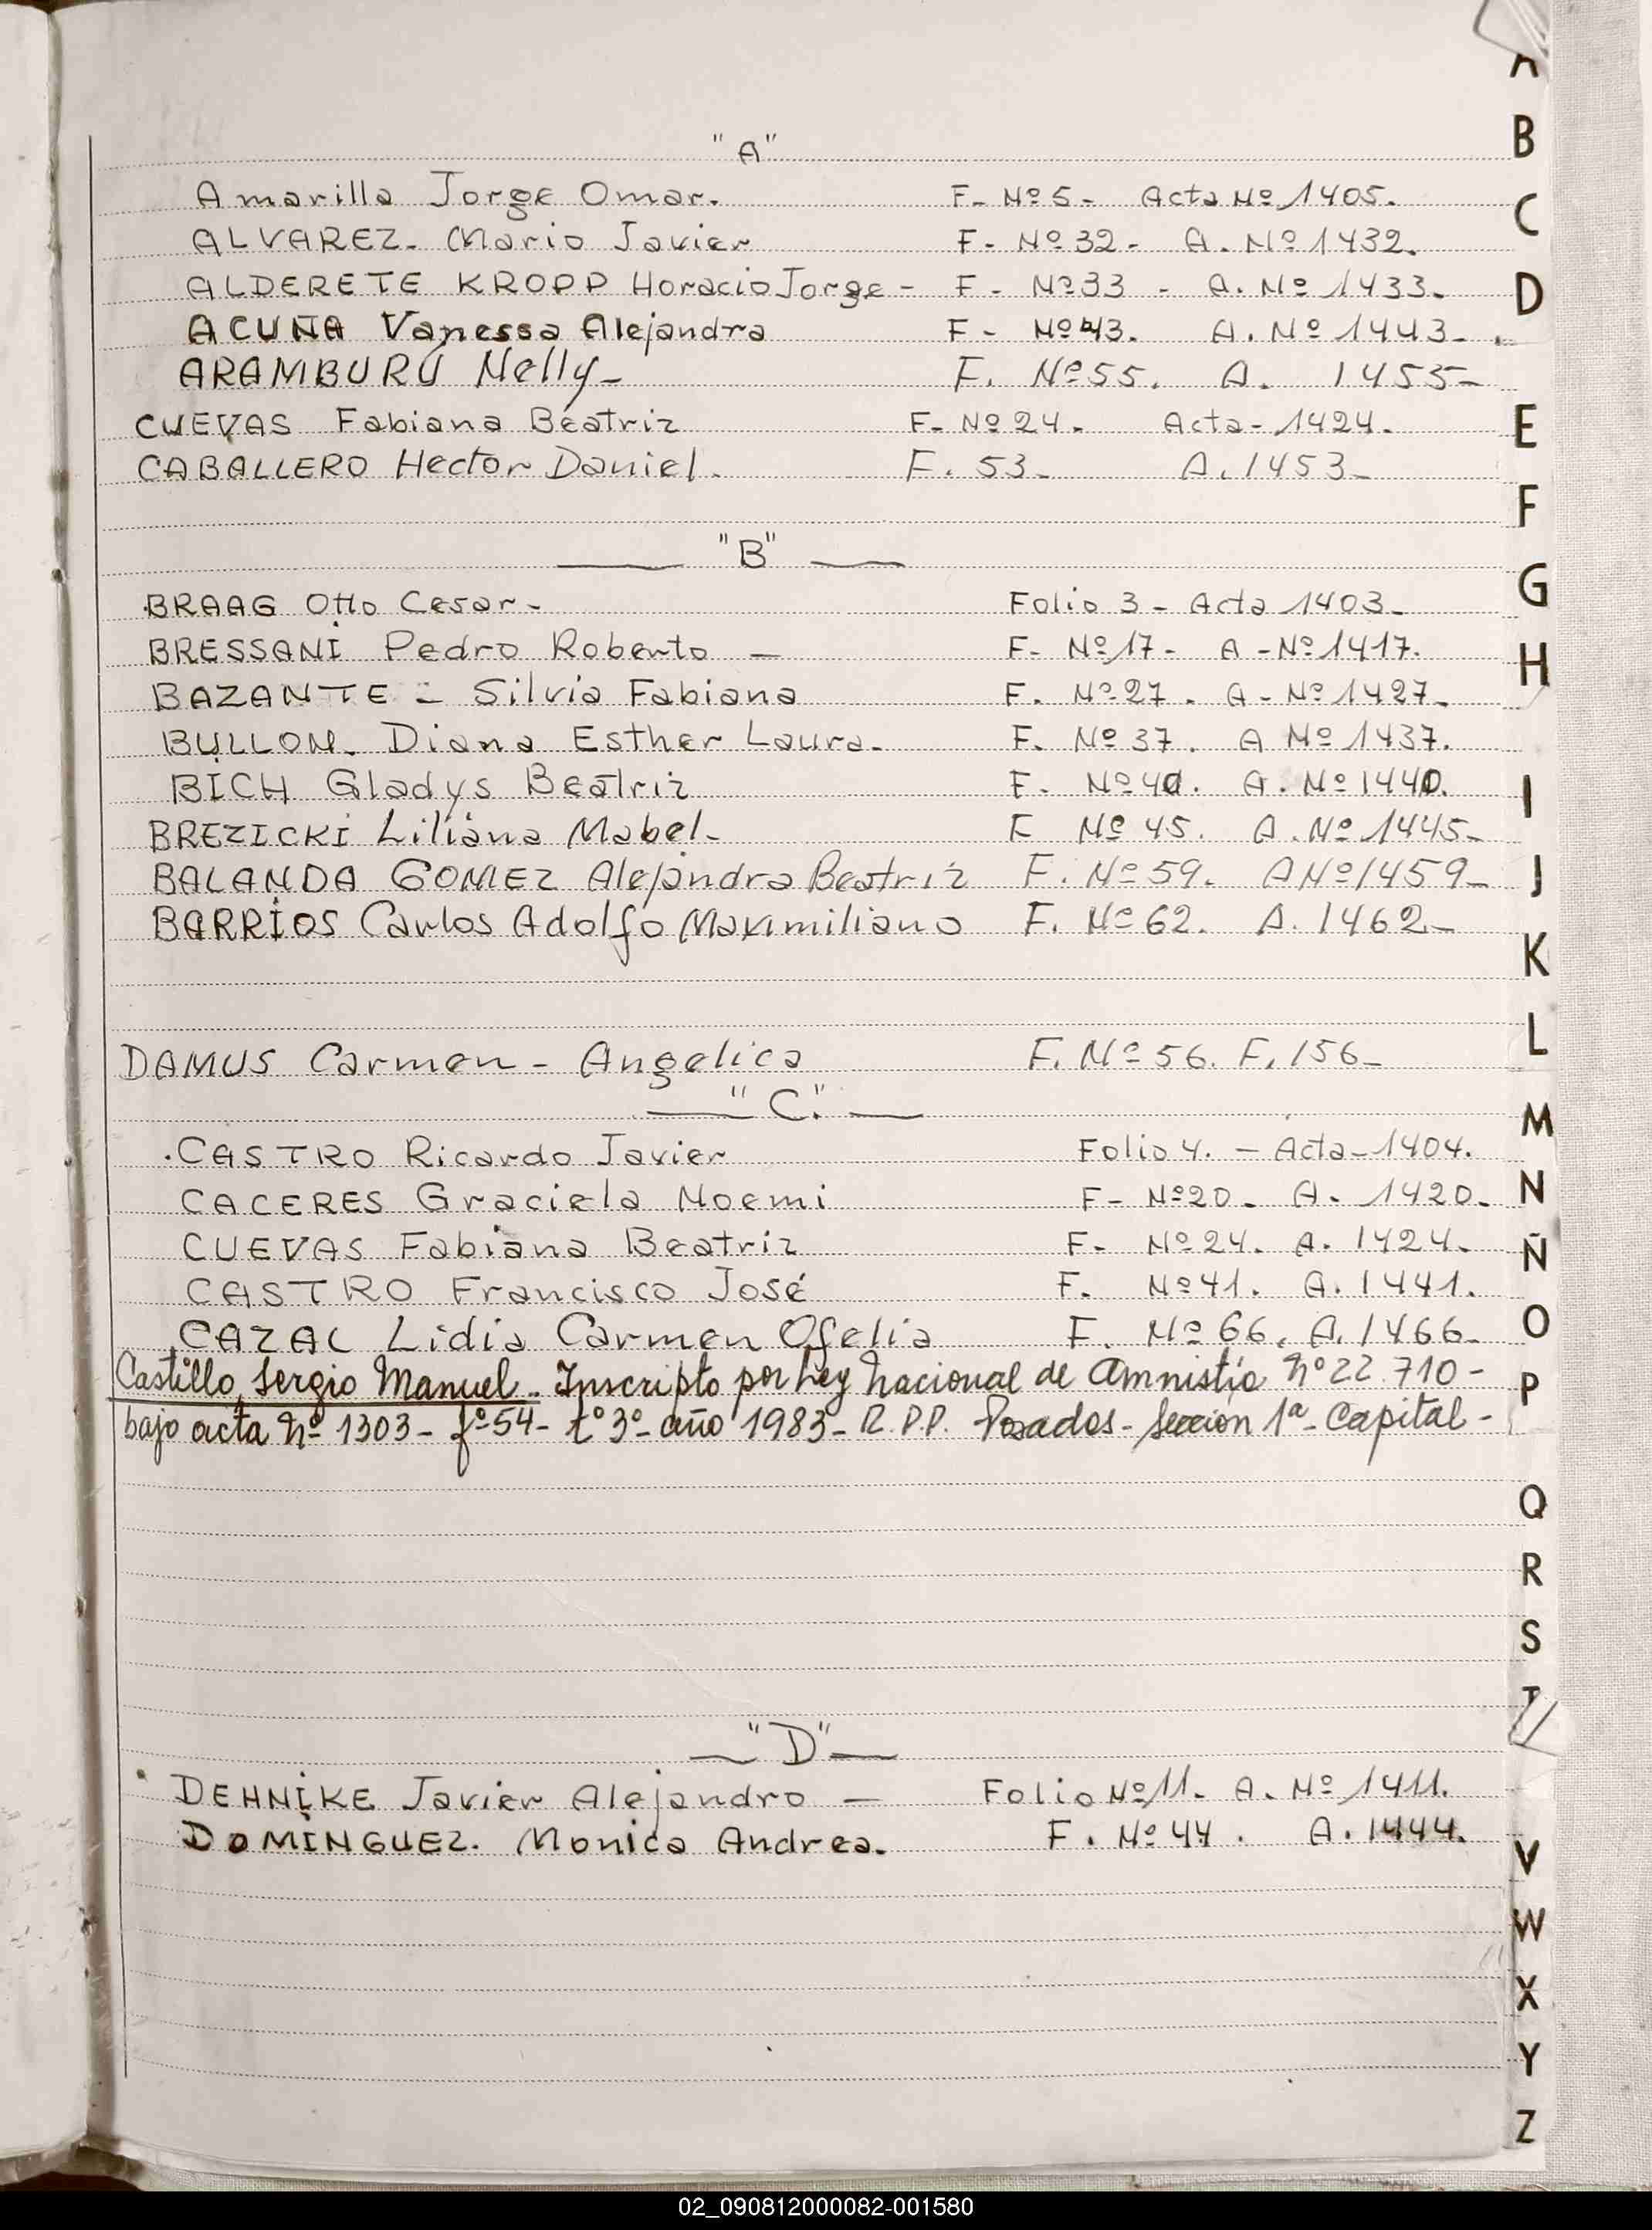 "A"
Amarilla Jorge Omar. F- Nº 5- Acta Nº 1405.
ALVAREZ- Mario Javier F- Nº 32- A. Nº 1432.
ALDERETE KROPP Horacio Jorge- F- Nº 33 - A. Nº 1433-
ACUÑA Vanessa Alejandra F- Nº 43. A. Nº 1443-.
ARAMBURÚ Nelly- F. Nº 55. A. 1455-
CUEVAS Fabiana Beatriz F- Nº 24- Acta- 1424-
CABALLERO Hector Daniel- F. 53- A. 1453-
"B"
BRAAG Otto Cesar- Folio 3- Acta 1403-
BRESSANI Pedro Roberto - F- Nº 17- A-Nº 1417.
BAZANTE - Silvia Fabiana F. Nº 27. A-Nº 1427-
BULLON. Diana Esther Laura- F. Nº 37. A Nº 1437.
BICH Gladys Beatriz F. Nº 40. A. Nº 1440.
BREZICKI Liliana Mabel- F Nº 45. A. Nº 1445-
BALANDA GOMEZ Alejandra Beatriz F. Nº 59. A Nº 1459-
BARRIOS Carlos Adolfo Maximiliano F. Nº 62. A. 1462-
DAMUS Carmen- Angelica F. Nº 56. F. 156-
"C."
.CASTRO Ricardo Javier Folio 4. - Acta- 1404.
CACERES Graciela Noemi F- Nº 20- A- 1420-
CUEVAS Fabiana Beatriz F- Nº 24. A. 1424-
CASTRO Francisco José F. Nº 41. A. 1441.
CAZAL Lidia Carmen Ofelia F. Nº 66. A. 1466-
Castillo, Sergio Manuel- Inscripto por Ley Nacional de Amnistía Nº 22.710-
bajo acta Nº 1303- fº 54- tº 3º- año 1983- R.P.P. Posadas- Sección 1ª- Capital-
"D"
DEHNIKE Javier Alejandro - Folio Nº 11- A. Nº 1411.
DOMINGUEZ. Monica Andrea. F. Nº 44. A. 1444.
A
B
C
D
E
F
G
H
I
J
K
L
M
N
Ñ
O
P
Q
R
S
T
V
W
X
Y
Z
02_090812000082-001580